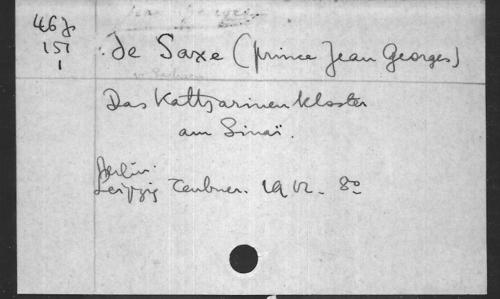 46 J
151
1
de Saxe (prince Jean Georges)
Das Katharinenkloster
am Sinaï.
Berlin.
Leipzig Teubner. 1912. 8º